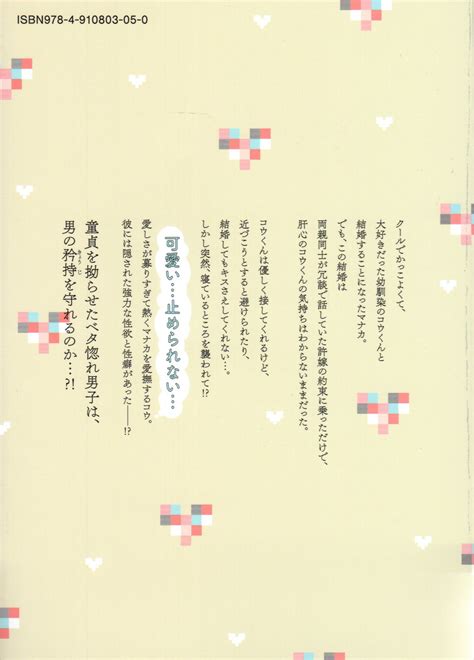 ISBN978-4-910803-05-0
クールでかっこよくて、
大好きだった幼馴染のコウくんと
結婚することになったマナカ。
でも、この結婚は
両親同士が冗談で話していた許嫁の約束に乗っただけで、
肝心のコウくんの気持ちはわからないままだった。
コウくんは優しく接してくれるけど、
近づこうとすると避けられたり、
結婚してもキスさえしてくれない…。
しかし突然、寝ているところを襲われて!?
可愛い…止められない…
愛しさが募りすぎて熱くマナカを愛撫するコウ。
彼には隠された強力な性欲と性癖があった――!?
童貞を拗らせたベタ惚れ男子は、
男の矜持を守れるのか…?!
きょうじ